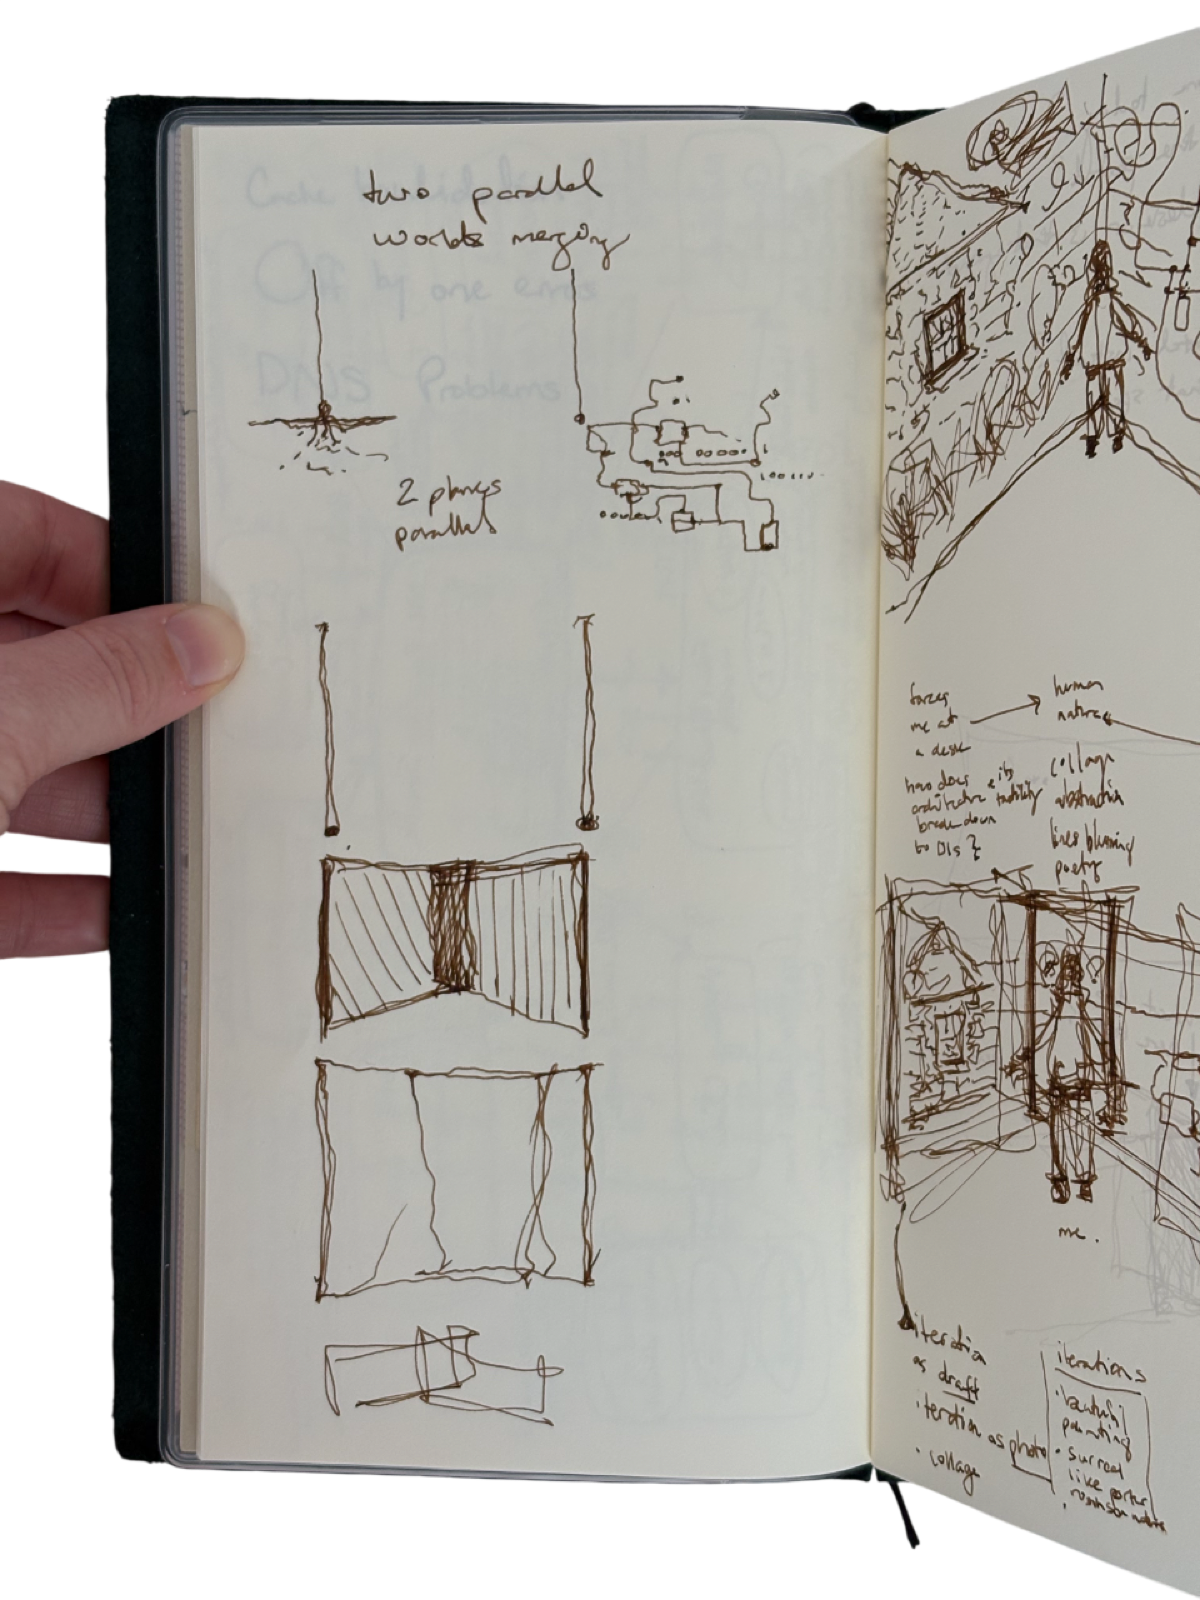 two parallel
worlds merging
2 planes
parallel
Cache
Off by one errors
DNS Problems
forces
me at
a desk
human
nature
how does
architecture & its
tactility
break down
to 01s ?
collage
abstraction
lines blurring
poetry
me.
iteration
as draft
iteration as photo
• collage
iterations
• beautiful
painting
• surreal
like porter
robinson